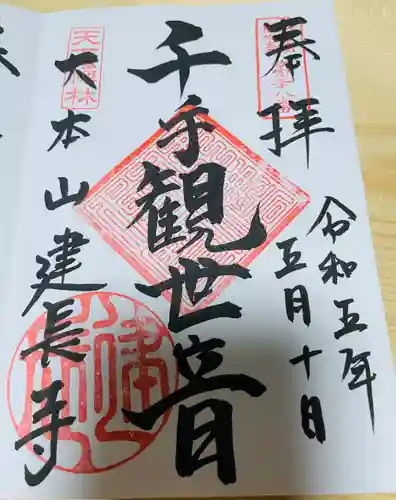 奉拝
令和五年
五月十日
千手観世音
大本山建長寺
天下禅林